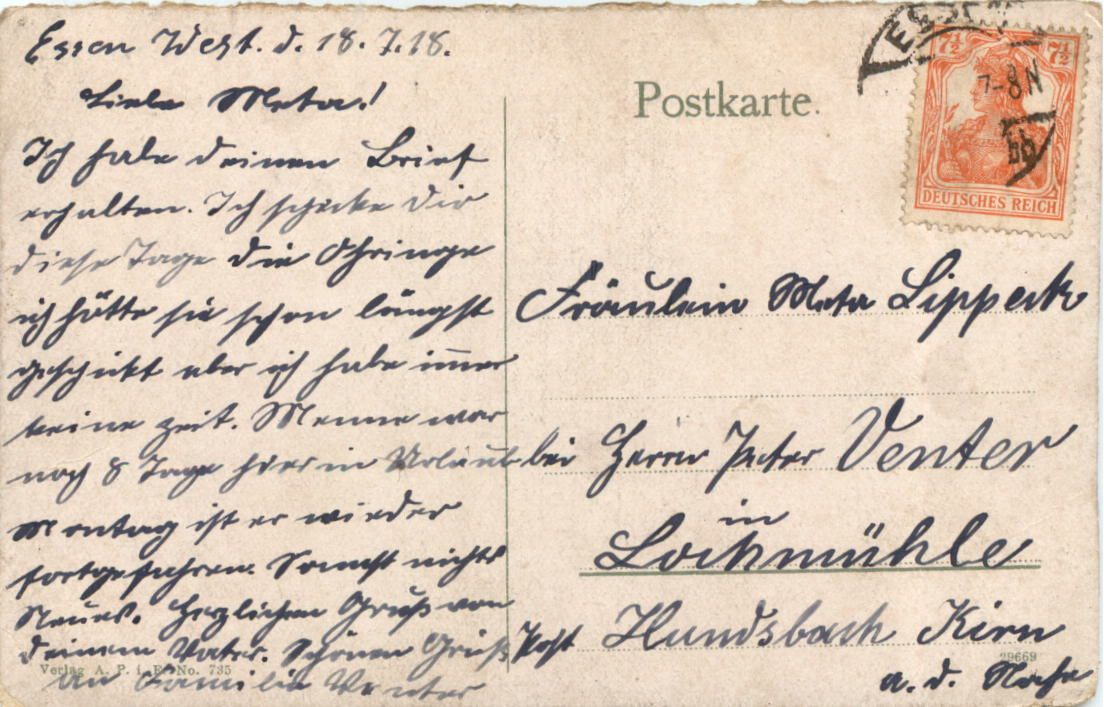 Essen West. d. 18.7.18.
Liebe Meta!
Ich habe deinen Brief
erhalten. Ich schicke Dir
diese Tage die Ohringe
ich hätte sie schon längst
geschikt aber ich habe im̅er
keine zeit. Menne war
noch 8 Tage hier in Urlaub
Montag ist er wieder
fortgefahren. Sonnst nichts
Neues. Herzlichen Gruß von
deinem Vater. Schönen Gruß
an Familie Venter
Verlag A. P. i. E. No. 735
Postkarte.
ESSEN
7-8N
7½ 7½
DEUTSCHES REICH
Fräulein Meta Lippeck
bei Herrn Peter Venter
in
Lochmühle
Post Hundsbach Kirn
29669
a. d. Nahe